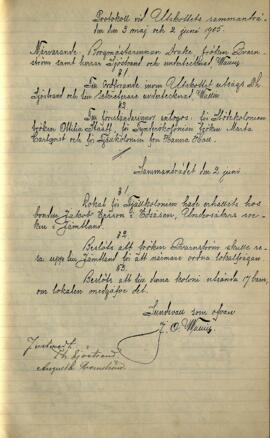 Protokoll vid Utskottets sammanträ-
den den 3 maj och 2 juni 1905.
Närvarande: Borgmästarinnan Arake, fröken Svan-
ström samt herrar Sjöstrand och undertecknad, Wallin
§1
Till ordförande inom Utskottet utsågs Th.
Sjöstrand och till sekreterare undertecknad, Wallin.
§2
Till föreståndarinnor antogos: för Stöckskolonien
fröken Ottilia Skålt, för Tynderökolonien fröken Märta
Carlquist och för Fjällkolonien frk Hanna
Sammanträdet den 2 juni
§1
Lokal för Fjällkolonien hade erhållits hos
bonden Jakob Ersson i Edsåsen, Undersåkers soc-
ken i Jämtland.
§2.
Beslöts att fröken Svanström skulle re-
sa upp till Jämtland för att närmare ordna lokalfrågan
§3.
Beslöts att till denna koloni utsända 17 barn,
om lokalen medgåfve det.
Sundsvall som ofvan
J. O. Wallin
Justerad:
Th Sjöstrand
Augusta Svanström